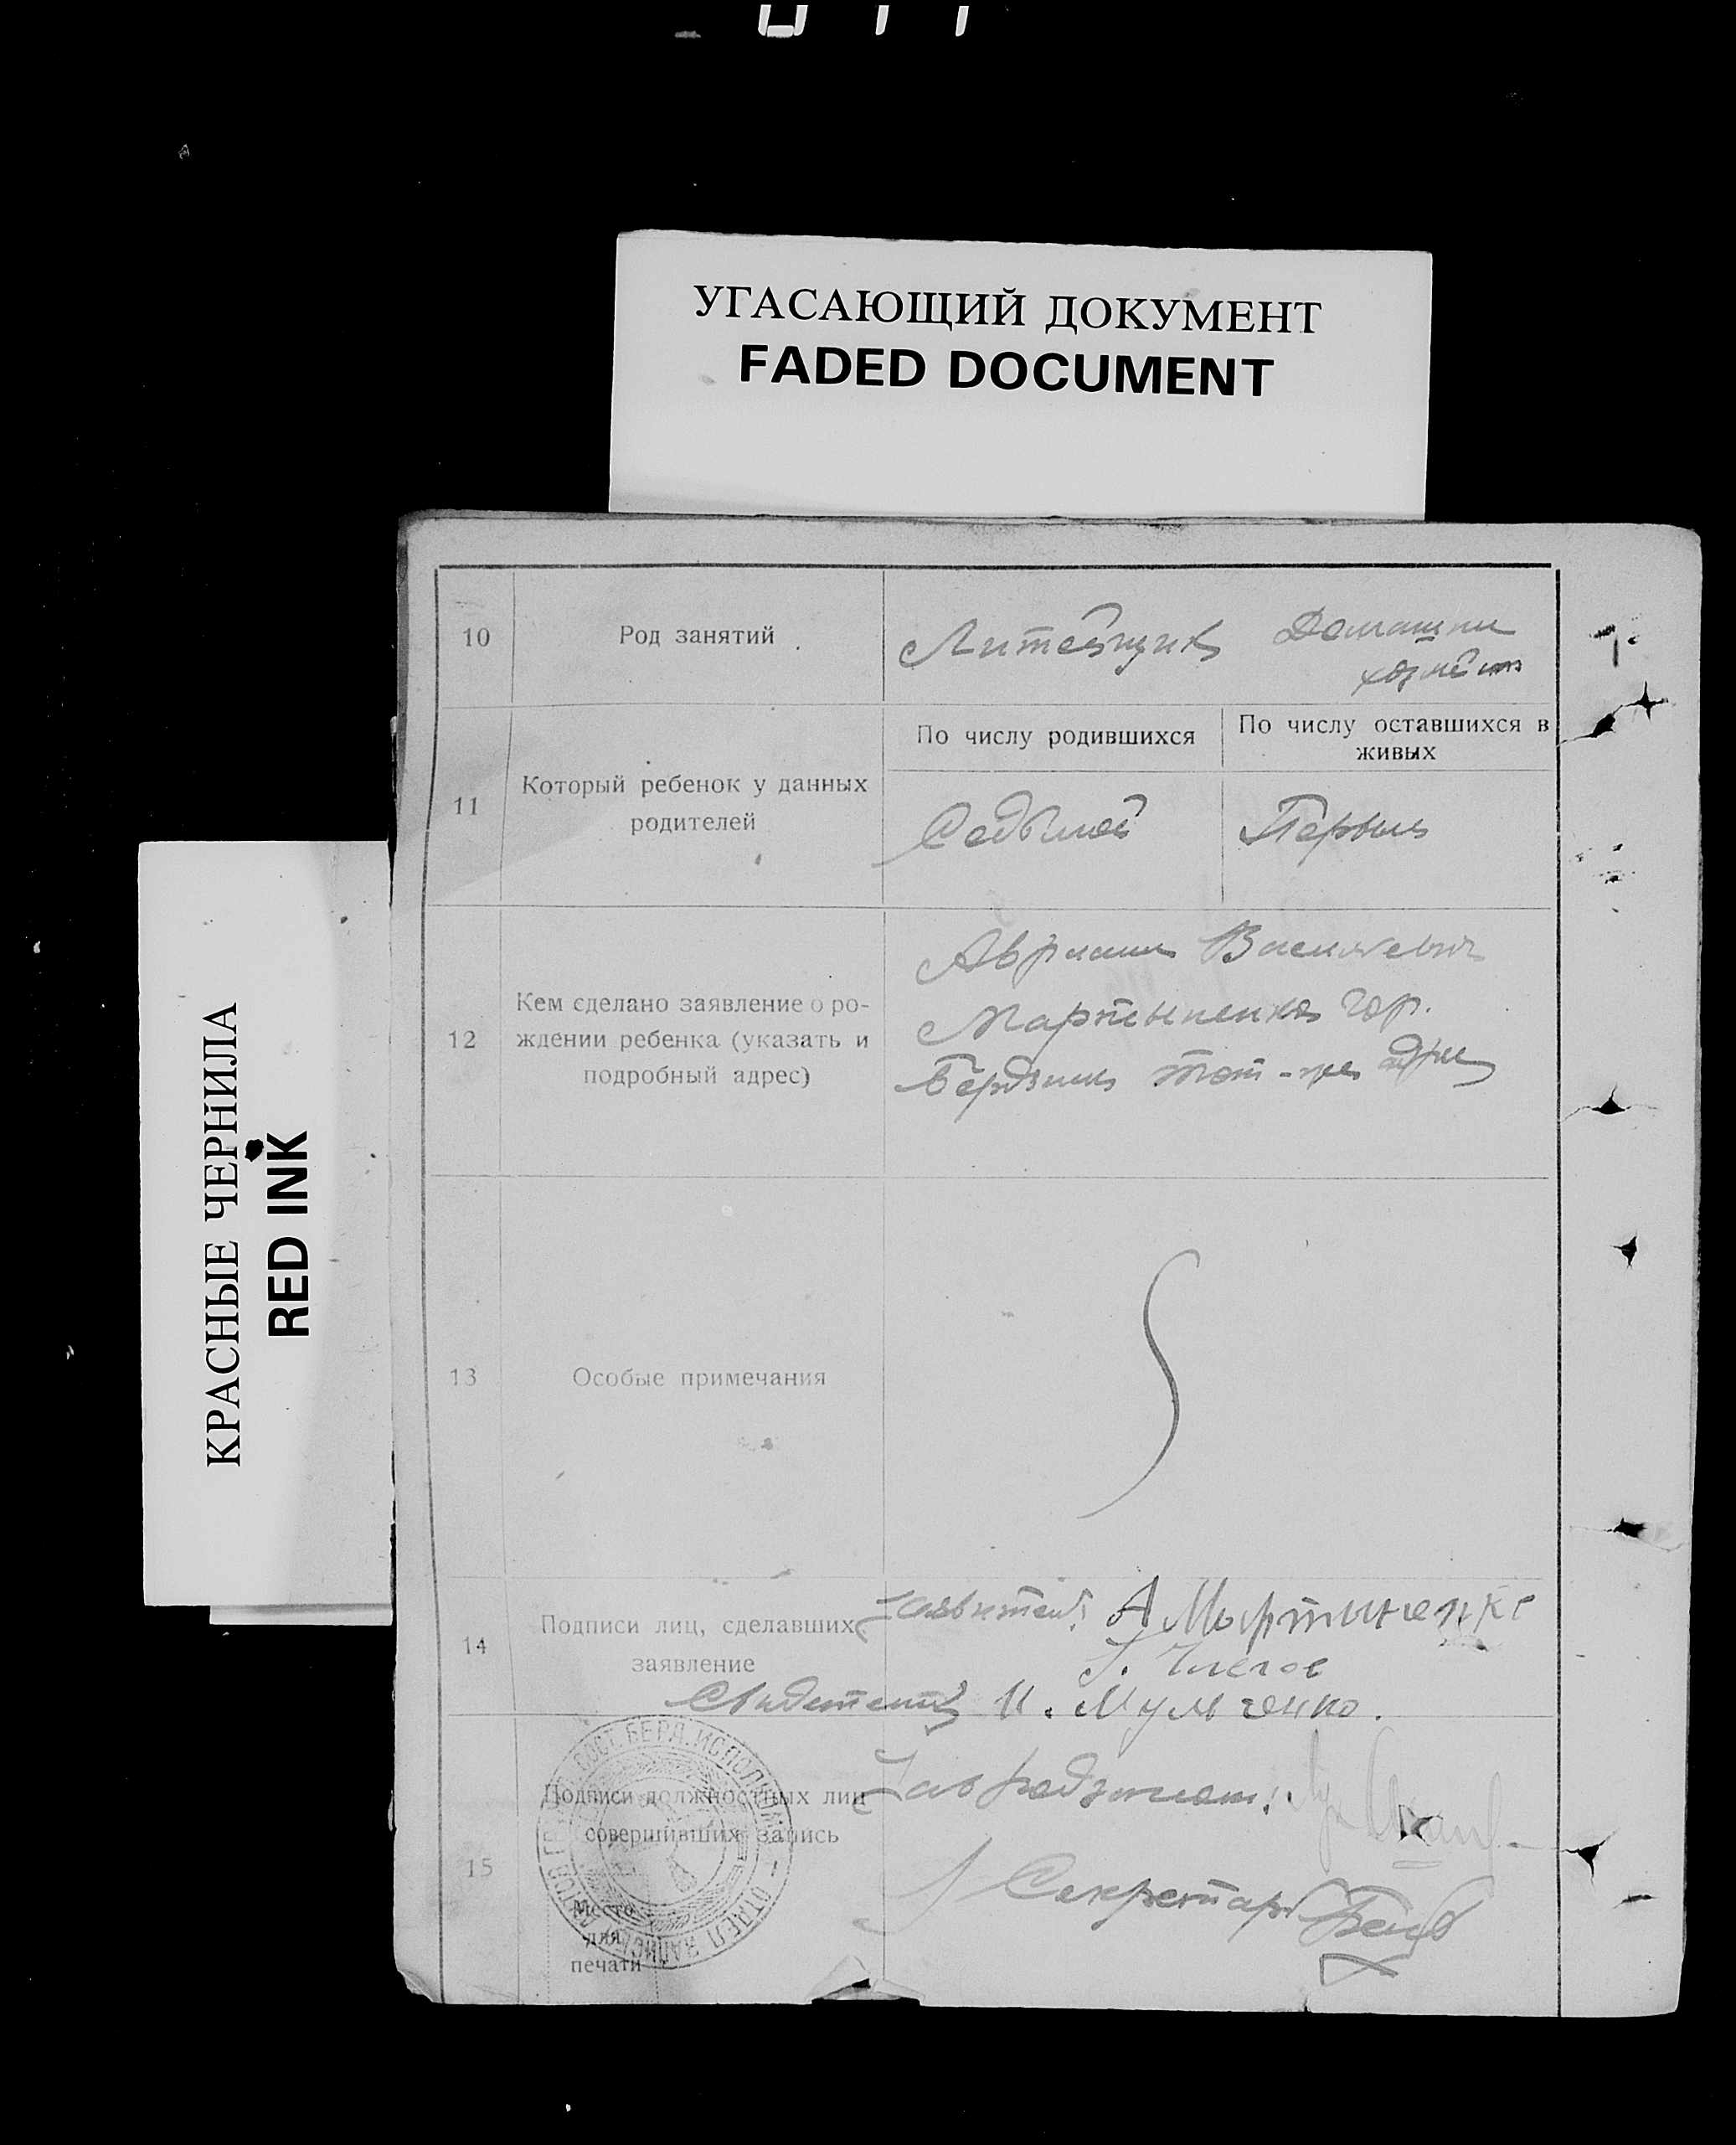 УГАСАЮЩИЙ ДОКУМЕНТ
FADED DOCUMENT
КРАСНЫЕ ЧЕРНИЛА
RED INK
10 Род занятий Литейщик Домашни
хозяйств
11 Который ребенок у данных родителей
По числу родившихся
По числу оставшихся в живых
Седьмой Первый
12 Кем сделано заявление о ро-
ждении ребенка (указать и
подробный адрес)
Василевич
Мартыненко гор.
Бердянск тот-же адрес
13 Особые примечания
14 Подписи лиц, сделавших
заявление
Заявитель: А Мартиненко
Свидетели И. Мульченко.
15 Подписи должностных лиц
совершивших запись
Секретарь
Место
для
печати